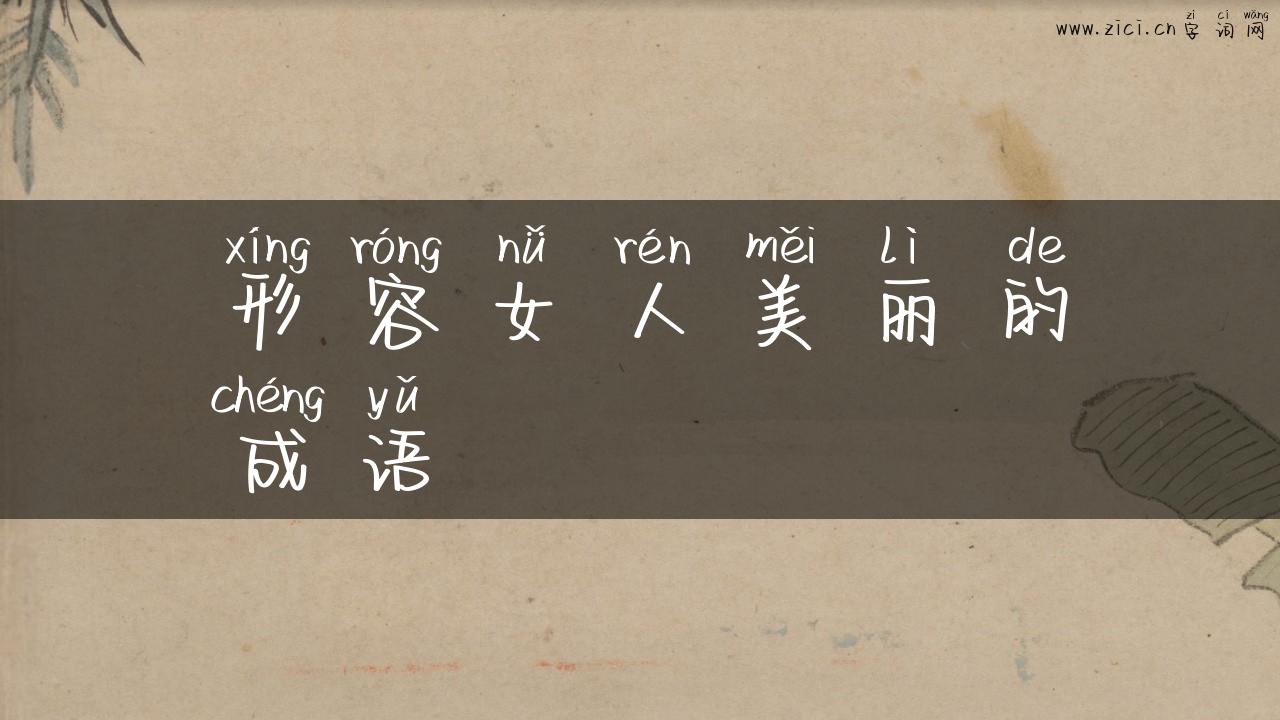 zì cí wǎng
www.zici.cn 字词网
xíng róng nǚ rén měi lì de
形容女人美丽的
chéng yǔ
成语